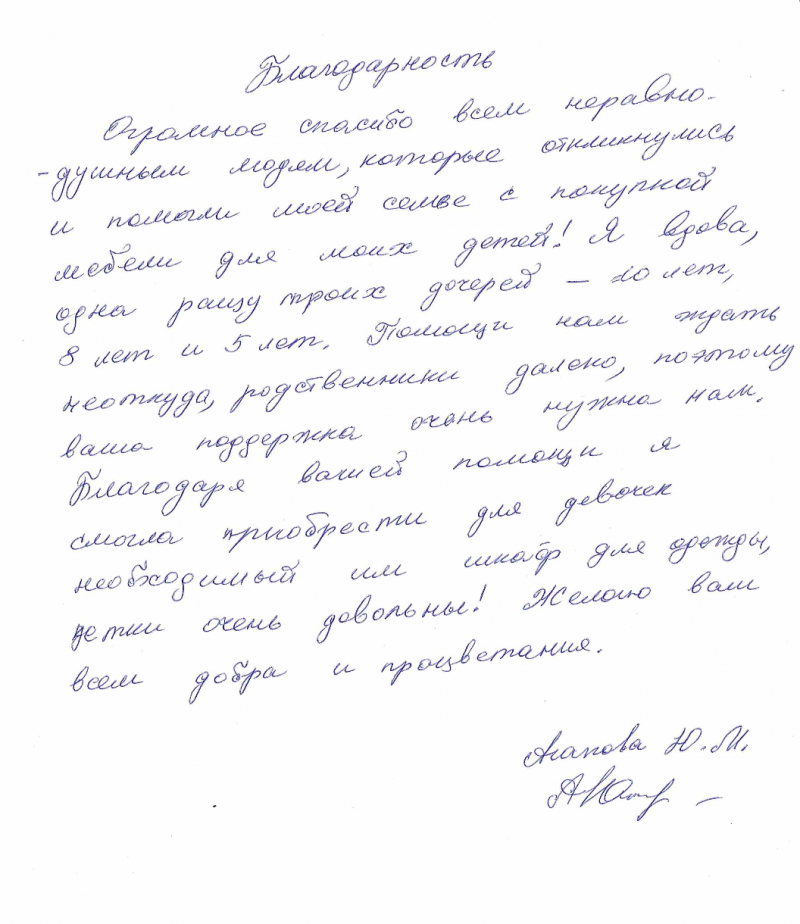 Благодарность
Огромное спасибо всем неравно-
-душным людям, которые откликнулись
и помогли моей семье с покупкой
мебели для моих детей! Я вдова,
одна ращу троих дочерей – 10 лет,
8 лет и 5 лет. Помощи нам ждать
неоткуда, родственники далеко, поэтому
ваша поддержка очень нужна нам.
Благодаря вашей помощи я
смогла приобрести для девочек
необходимый им шкаф для одежды,
детки очень довольны! Желаю вам
всем добра и процветания.
Агапова Ю.М.